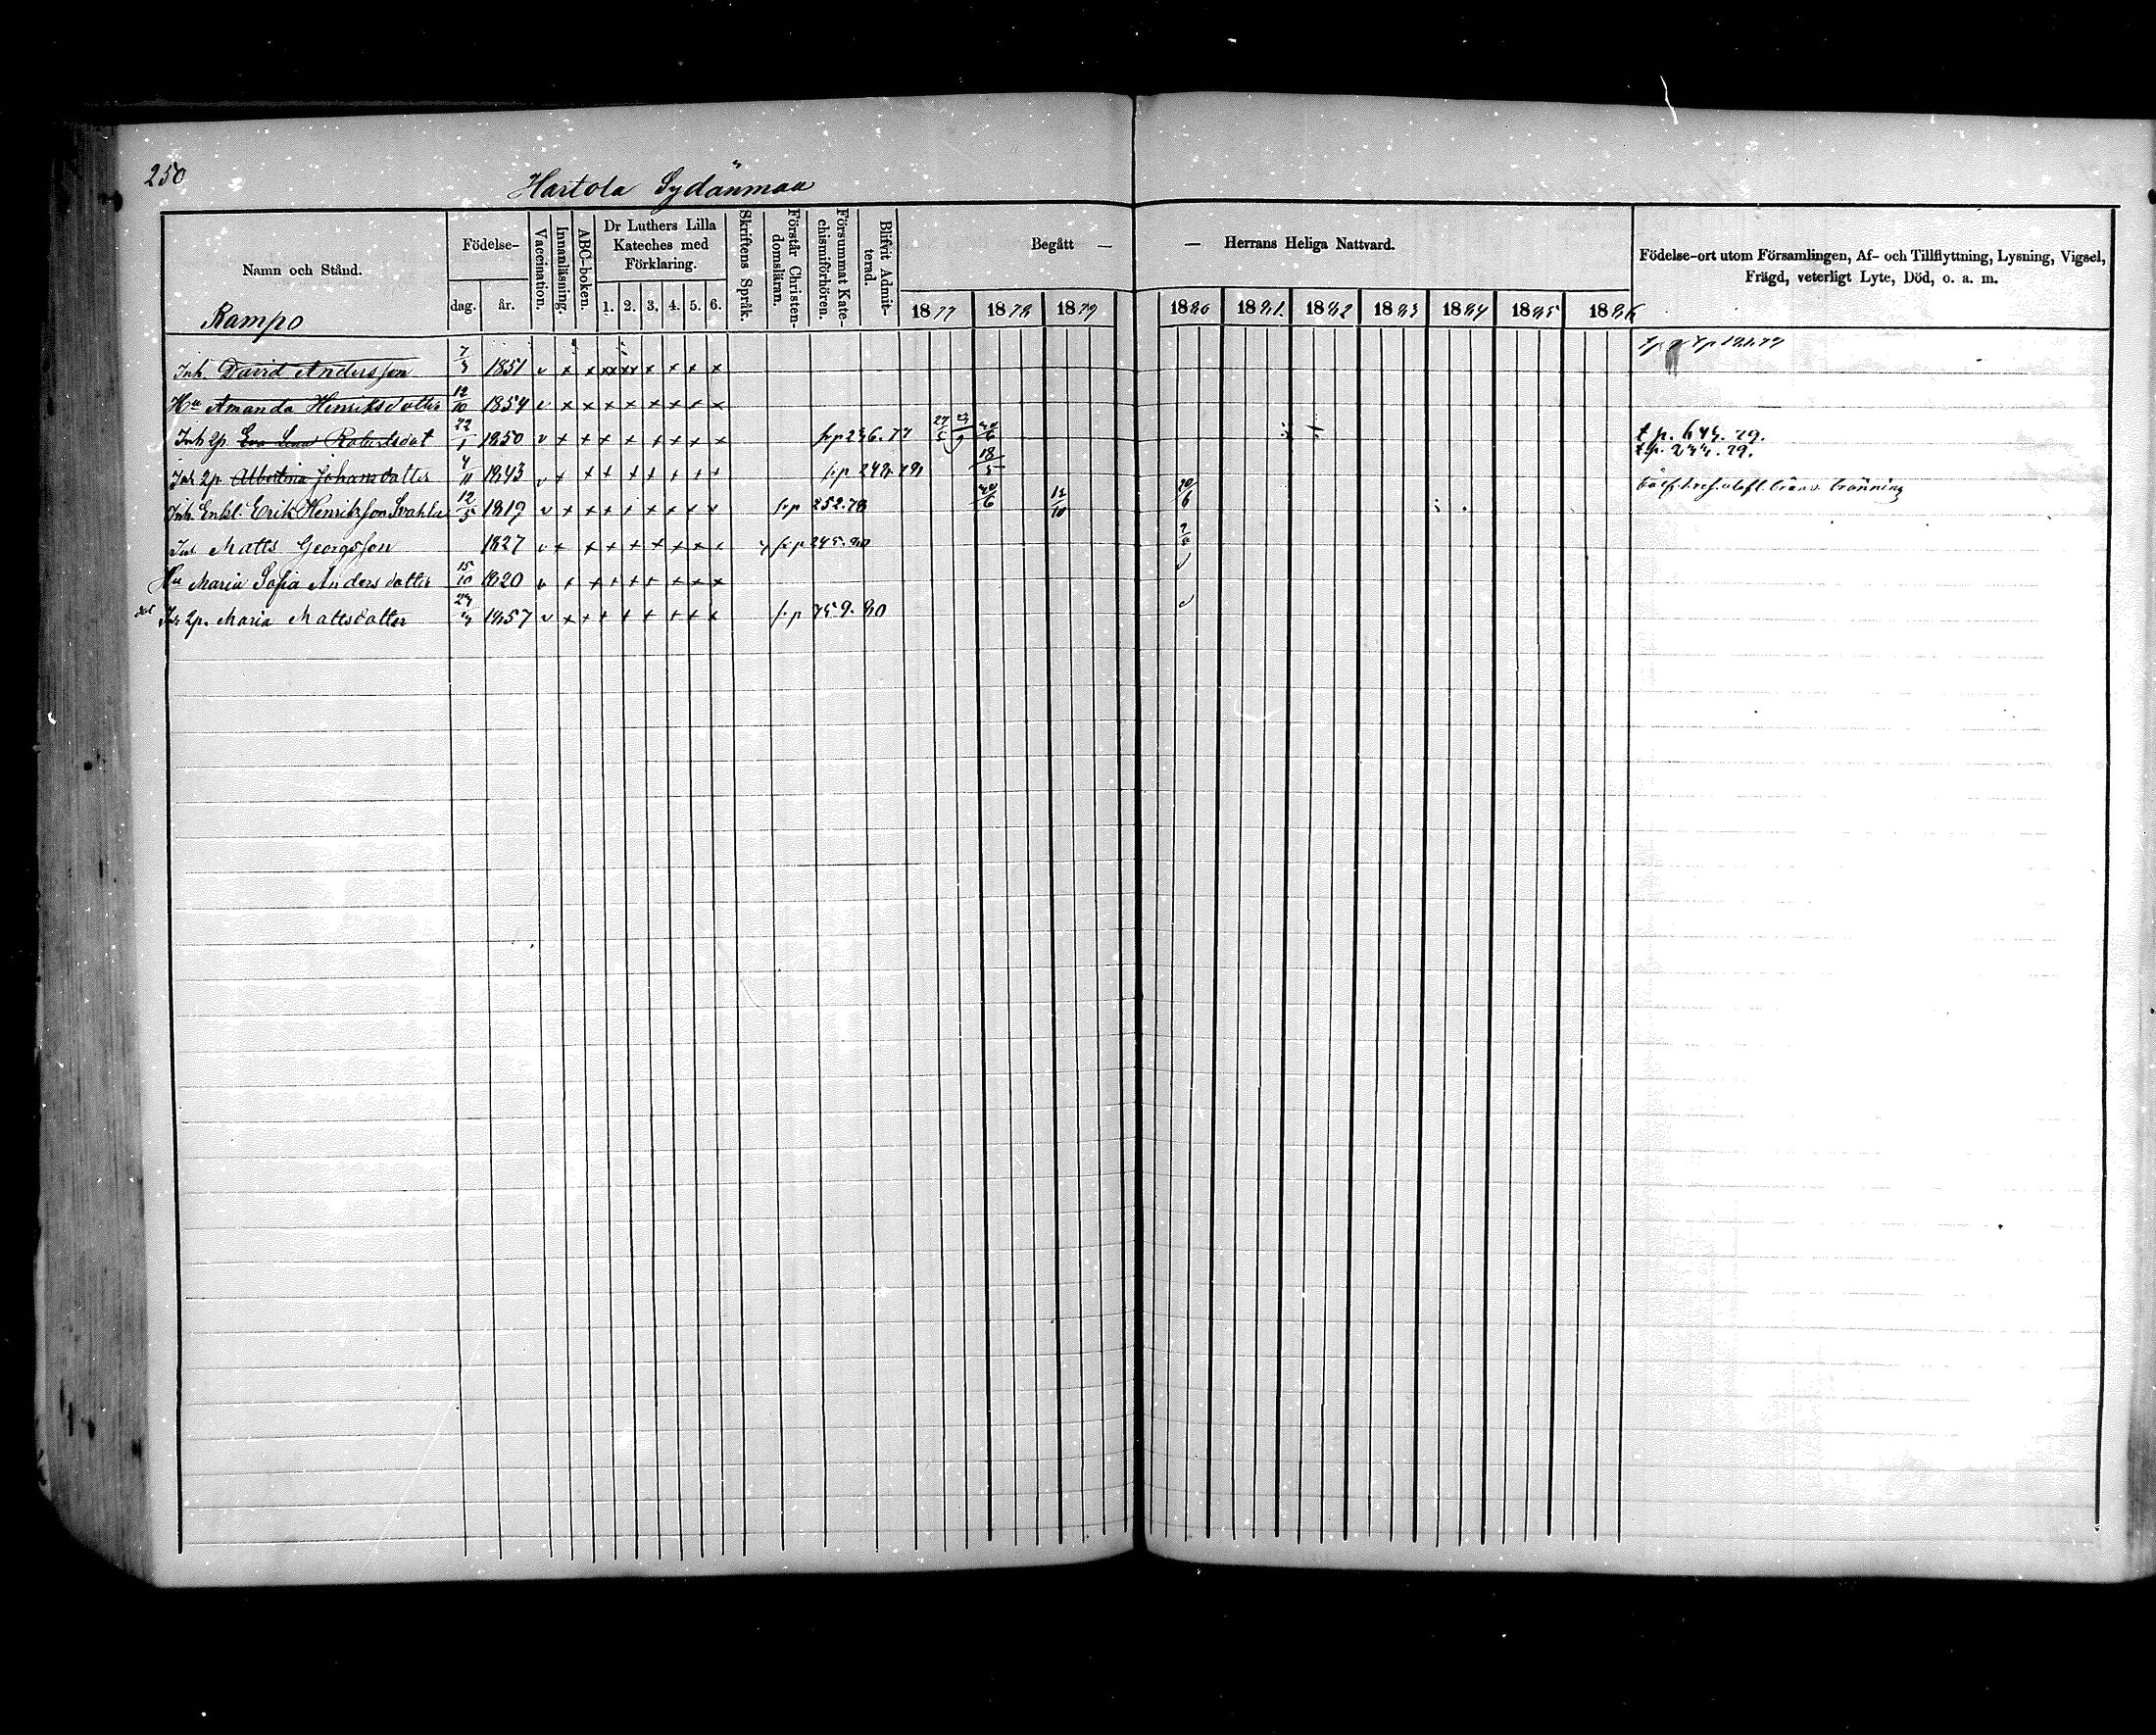 250
Hartola Sydänmaa
Namn och Stånd.
Rampo
Födelse-
dag. år.
Vaccination.
Innanläsning.
ABC-boken.
Dr Luthers Lilla Kateches med Förklaring.
1. 2. 3. 4. 5. 6.
Skriftens Språk.
Förstår Christen-domsläran.
Försummat Kate-chismiförhören.
Blifvit Admit-terad.
Begått — — Herrans Heliga Nattvard.
1877 1878 1879 1880 1881 1882 1883 1884 1885 1886
Födelse-ort utom Församlingen, Af- och Tillflyttning, Lysning, Vigsel,
Frägd, veterligt Lyte, Död, o. a. m.
Inh. David Andersson 7/3 1851 v x x x x x x x x
Hu Amanda Henriksdotter 12/10 1854 v x x x x x x x x
Inh 2p. Eva Lena Robertsdot 22/1 1850 v x x x x x x x x frp 236.77 t p. 644. 79.
Inh 2p Albertina Johansdotter 4/11 1843 v x x x x x x x x frp 248.78 18/5 t p. 244. 79.
Inh. Enkl. Erik Henriksson Svahla 12/5 1819 v x x x x x x x v frp 252.78 12/10 20/6
Inh Matts Georgsson 1827 v x x x x x x x frp 245.80
Hu Maria Sofia Andersdotter 15/10 1820 v x x x x x x x x v
Inh 2p. Maria Mattsdotter 1857 v x x x x x x x x frp 759.80 v